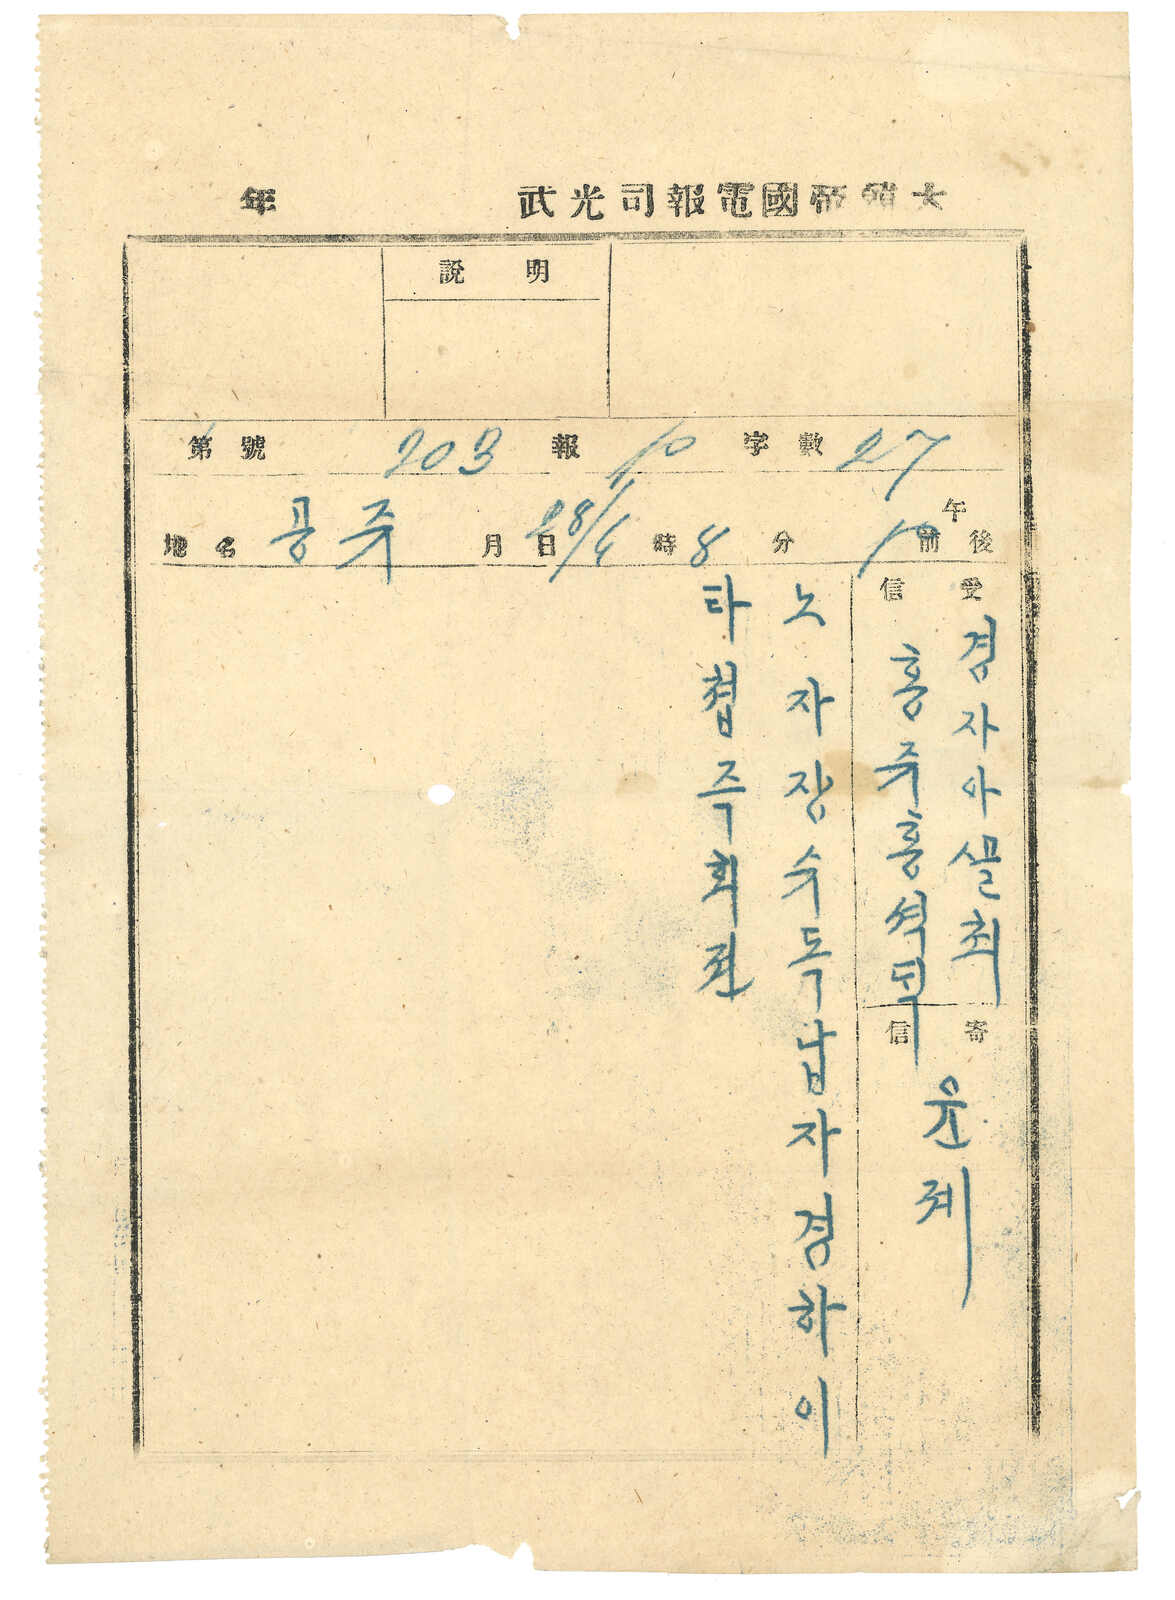 大韓帝國電報司光武 年
明 說
第 號 203 報 10 字 數 27
地 名 공주 月 日 28/6 時 8 分 10 午 前 後
受 信
경자아실최
홍주홍셕덕
寄 信
윤졔
노자장수독납자경하이
타협즉회젼